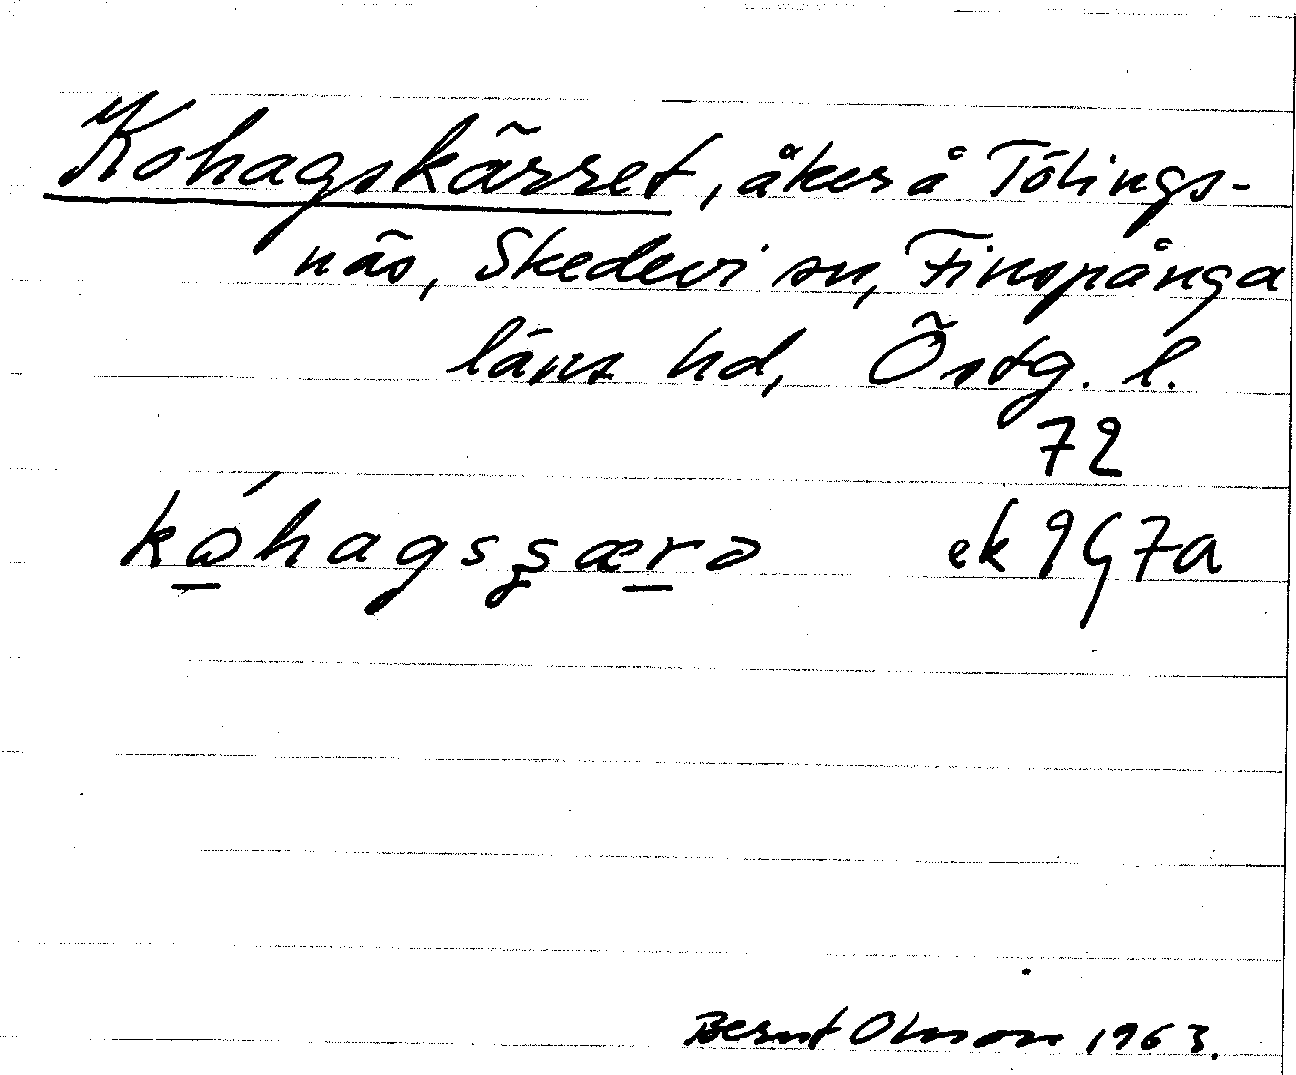 Kohagskärret, åker å Tölings-
näs, Skedevi sn, Finspånga
läns hd, Östg. l.
72
kǫ́hagsşærə ek 9G7a
Bernt Olsson 1963.